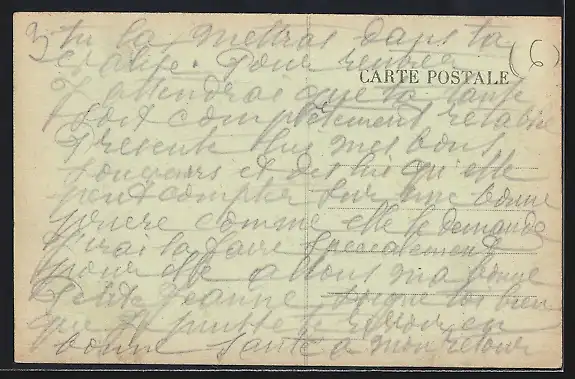 3 tu la mettras dans ta (6)
cravate. Pour rentrer
CARTE POSTALE
J attendrai que ta tante
soit complètement rétablie
Presente lui mes bons
souvenirs et dis lui qu'elle
peut compter sur une bonne
prière comme elle le demande
J'irai la faire specialement
pour elle allons ma bonne
Petite Jeanne soigne toi bien
que je puisse te revoir en
bonne santé a mon retour